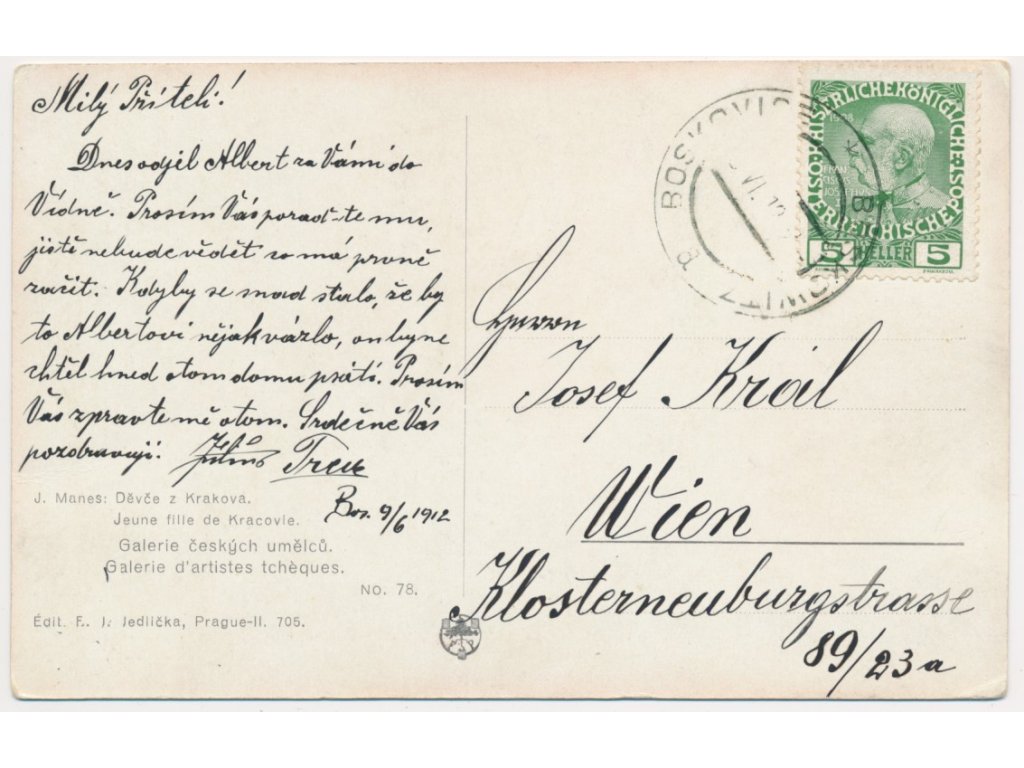 Milý Příteli!
Dnes odjel Albert za Vámi do
Vídně. Prosím Vás poraď-te mu,
jistě nebude vědět co má prvně
začít. Kdyby se snad stalo, že by
to Albertovi nějak vázlo, on by ne
chtěl hned o tom domu psáti. Prosím
Vás zpravte mě o tom. Srdečně Vás
pozdravuji.
Bos. 9/6 1912
J. Manes: Děvče z Krakova.
Jeune fille de Cracovie.
Galerie českých umělců.
Galerie d'artistes tchèques.
No. 78.
Édit. F. J. Jedlička, Prague-II. 705.
BOSKOVICE
KAISERLICHE KÖNIGLICHE
ÖSTERREICHISCHE POST
5 HELLER 5
Josef Král
Wien
Klosterneuburgstrasse
89/23a